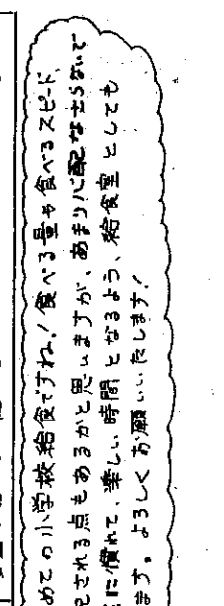 めての小学校給食ですね！食べる量や食べるスピード、
配される点もあるかと思いますが、あまり心配なさらないで
に慣れて、楽しい時間となるよう、給食室としても
ます。よろしくお願いいたします！